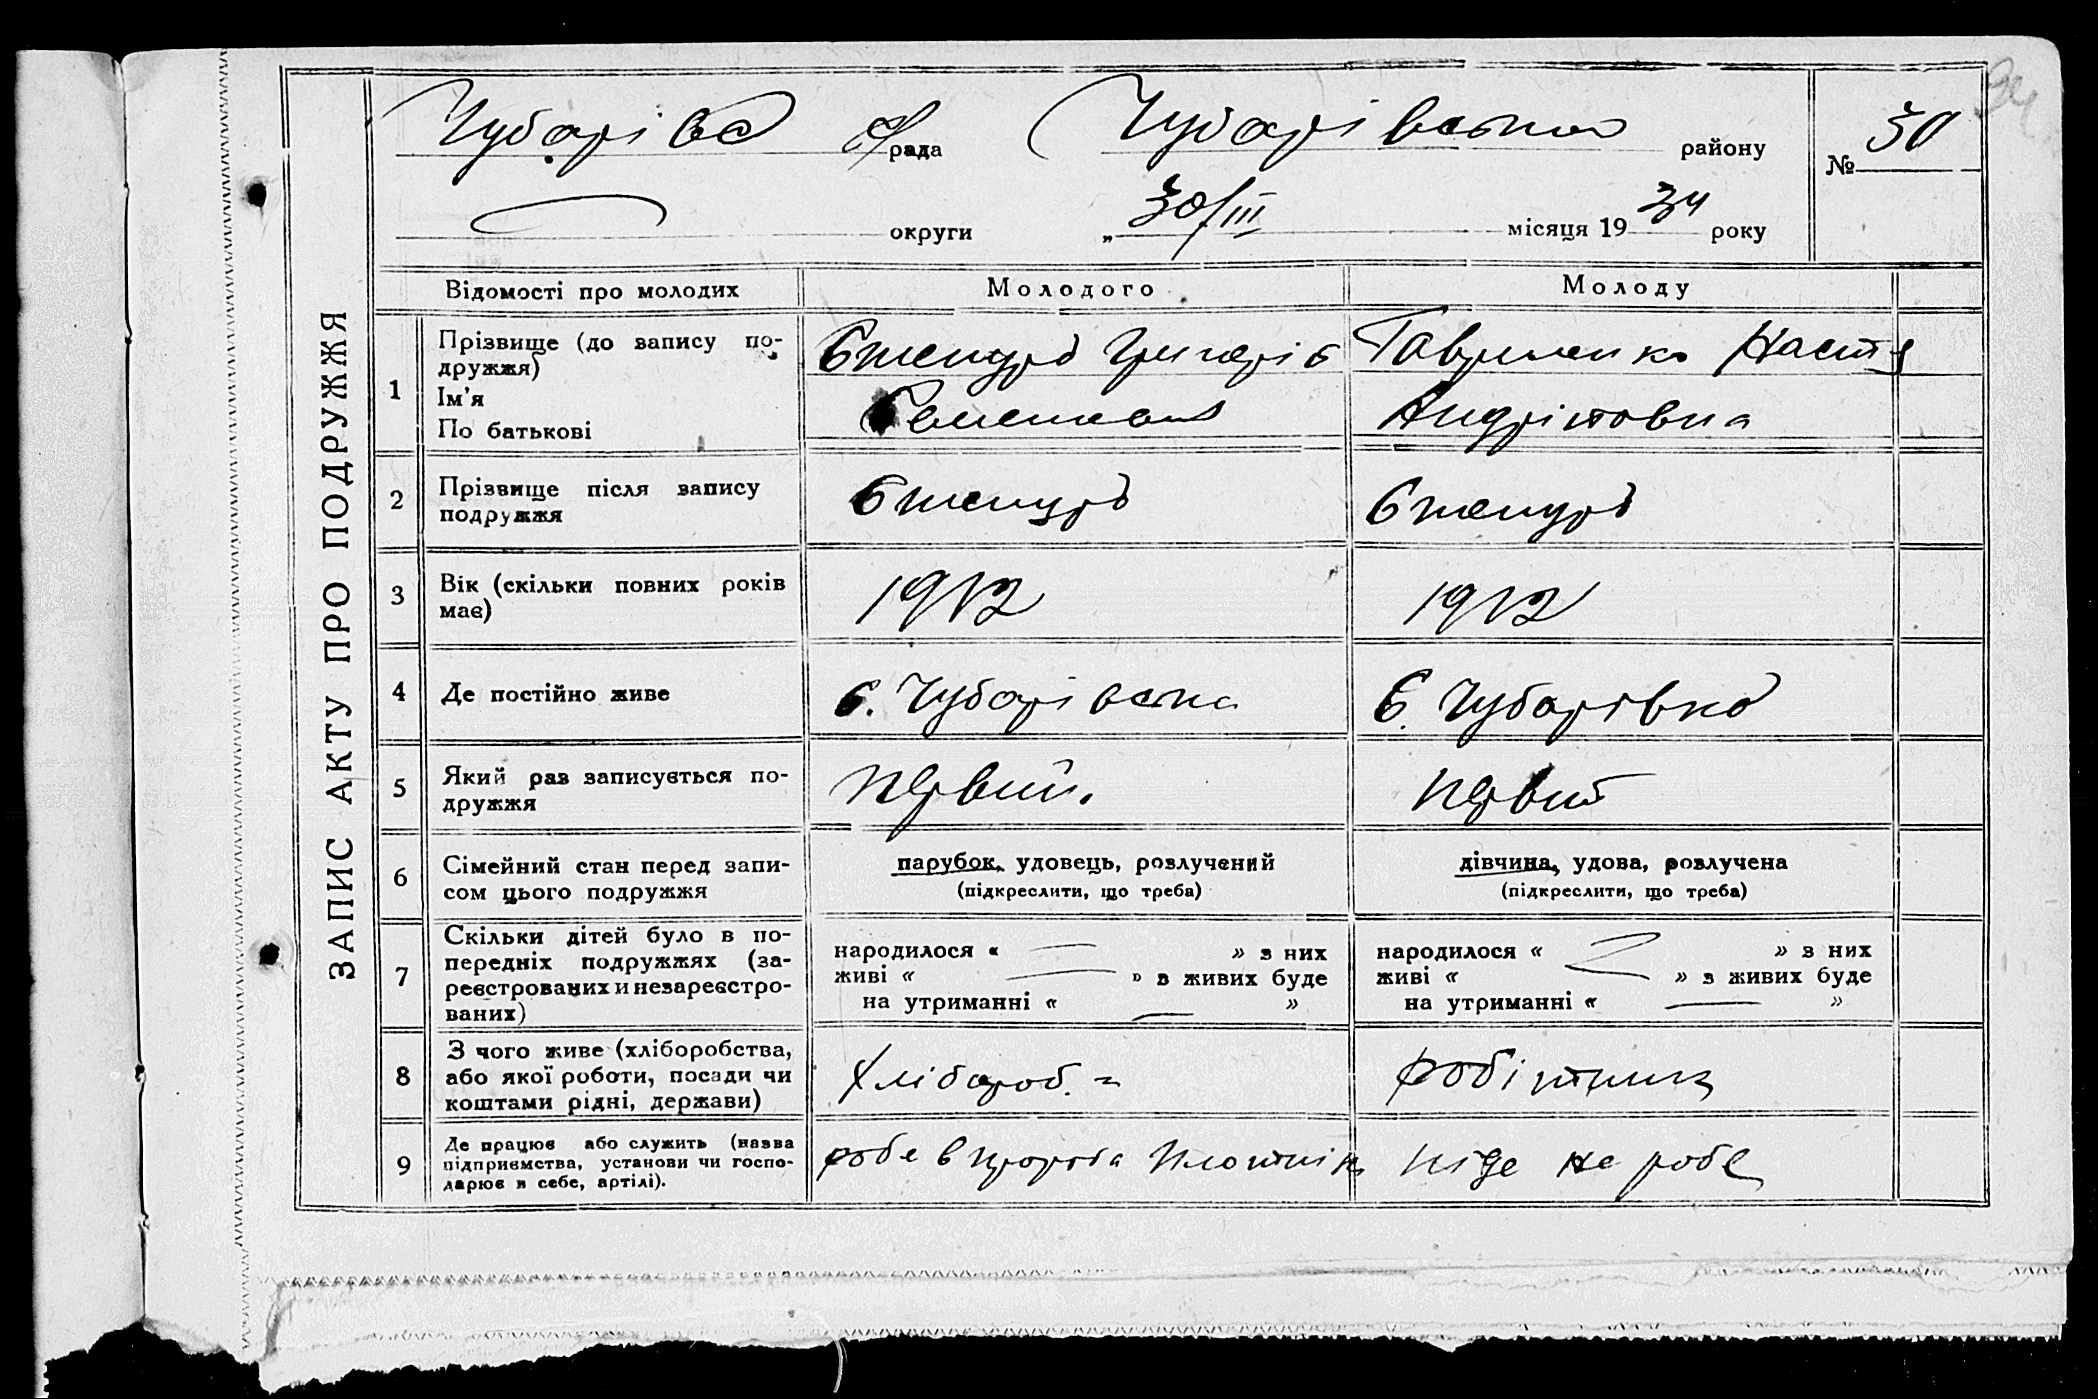 Чубарівс с/рада Чубарівська району № 30
94
округи „ 30/III місяця 19 34 року
ЗАПИС АКТУ ПРО ПОДРУЖЖЯ
Відомості про молодих Молодого Молоду
1 Прізвище (до запису по-
дружжя)
Ім'я
По батькові
Гавриленко Настя
Андріповна
2 Прізвище після запису
подружжя
3 Вік (скільки повних років
має)
1912 1912
4 Де постійно живе С. Чубарівська С. Чубарівка
5 Який раз записується по-
дружжя
первий. первий
6 Сімейний стан перед запи-
сом цього подружжя
парубок, удовець, розлучений
(підкреслити, що треба)
дівчина, удова, розлучена
(підкреслити, що треба)
7 Скільки дітей було в по-
передніх подружжях (за-
реєстрованих и незареєстро-
ваних)
народилося « — » з них
живі « — » з живих буде
на утриманні « — »
народилося « — » з них
живі « — » з живих буде
на утриманні « — »
8 З чого живе (хліборобства,
або якої роботи, посади чи
коштами рідні, держави)
хлібороб. робітниц
9 Де працює або служить (назва
підприємства, установи чи госпо-
дарює в себе, артілі).
робе в плотнік ніде не робе